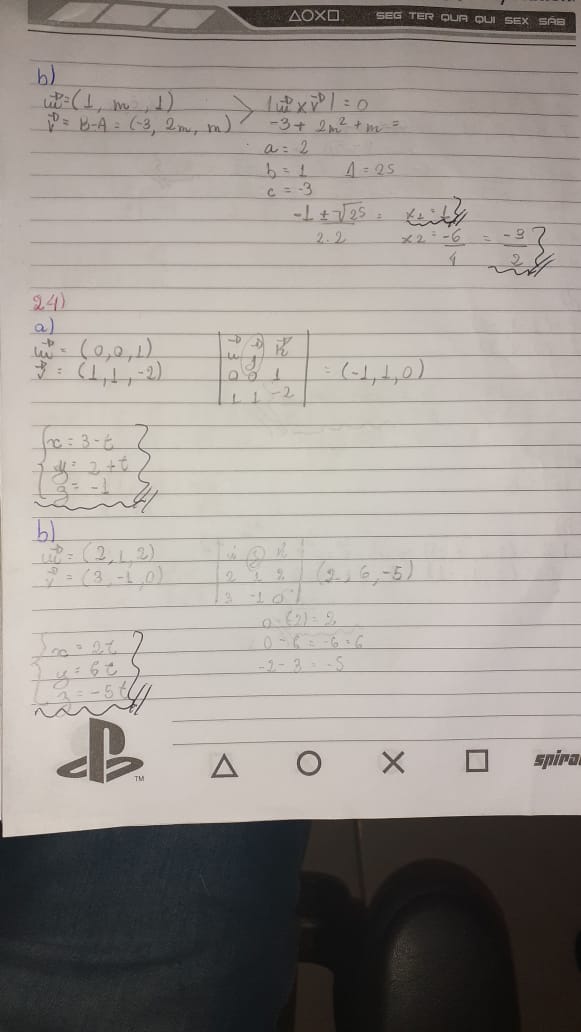 △○✕□ SEG TER QUA QUI SEX SÁB
b)
= (1, m, 1)
v = B-A = (-3, 2m, m)
-3 + 2m² + m =
a = 2
b = 1 Δ = 25
c = -3
-1 ± √25 =
2.2
x2 = -6/4 = -3/2
24)
a)
= (0,0,1)
v = (1,1,-2)
0 0 1
1 1 -2
= (-1,1,0)
x = 3-t
y = 2+t
z = -1
b)
= (2,1,2)
v = (3,-1,0)
2 1 2
3 -1 0
(2, 6, -5)
0-(-2) = 2
0 - 6 = -6 = 6
-2 - 3 = -5
x = 2t
y = 6t
z = -5t
TM △ ○ ✕ □